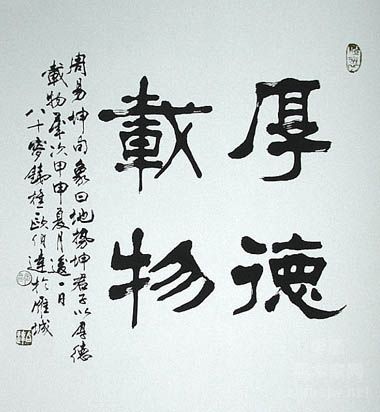 厚德
載物
周易坤象曰地勢坤君子以厚德
載物歲次甲申夏月後一日
八十歐伯達於雁城